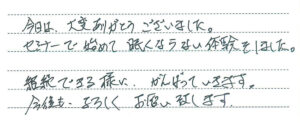 今日は、大変ありがとうございました。
セミナーで始めて眠くならない体験をしました。
継続できる様に、がんばっていきます。
今後も、よろしくお願い致します